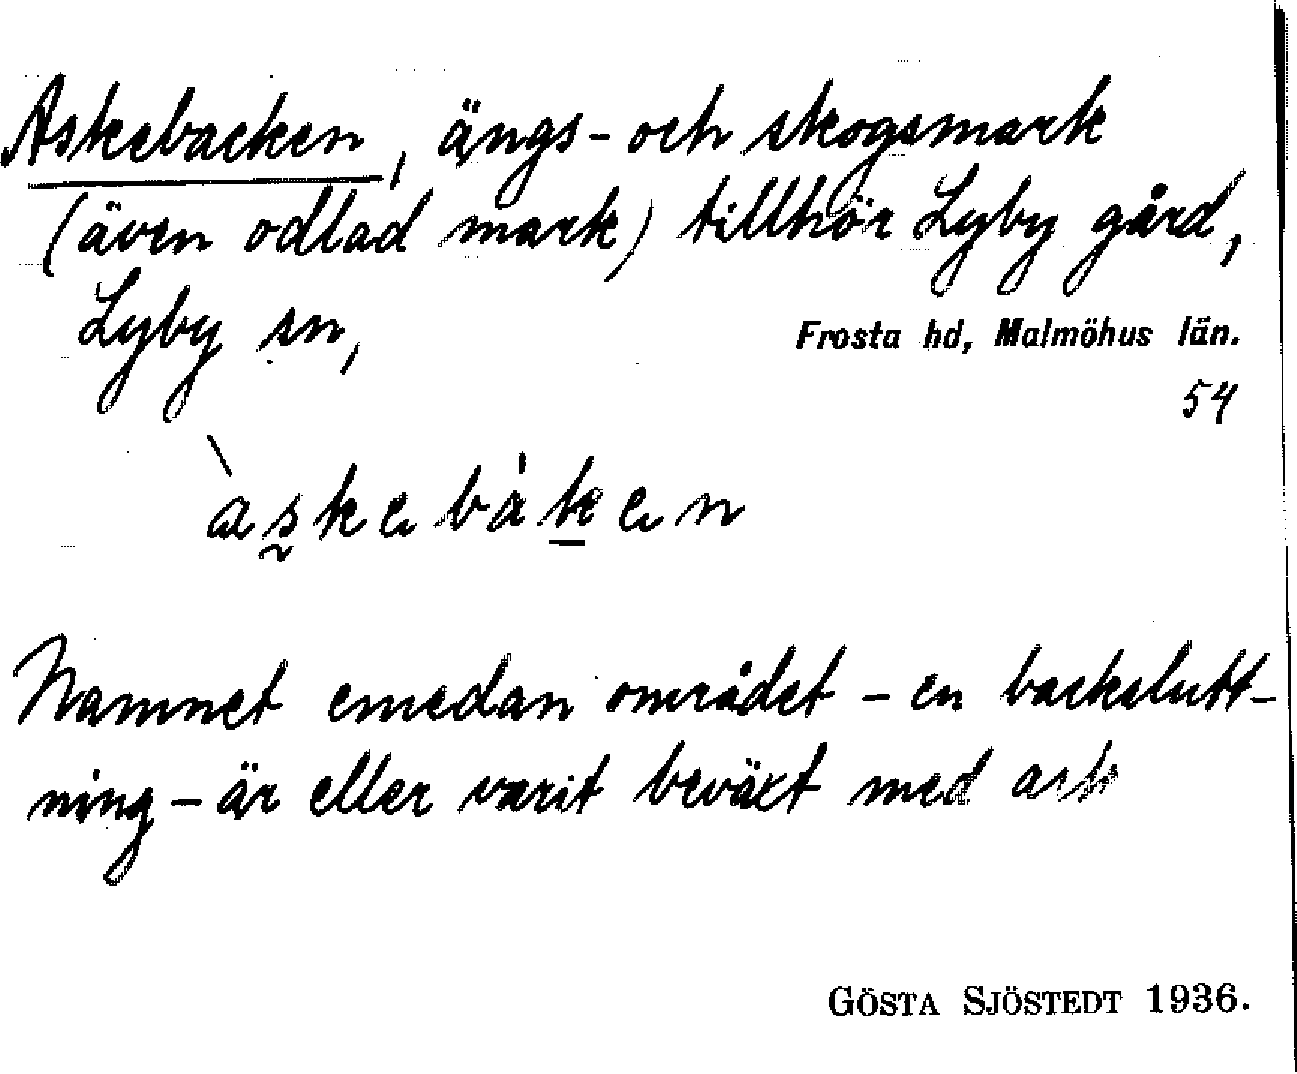 Askebacken, ängs- och skogsmark
(även odlad mark) tillhör Lyby gård,
Lyby sn,
Frosta hd, Malmöhus län.
54
às̰kebȧk̲en
Namnet emedan området – en backslutt-
ning – är eller varit beväxt med ask
GÖSTA SJÖSTEDT 1936.